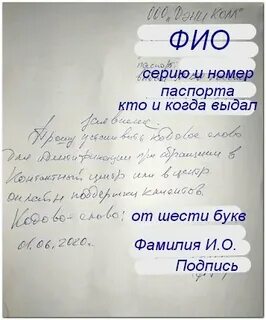 ООО „Дэни Колл"
ФИО
паспорт
серию и номер
паспорта
кто и когда выдал
Заявление
Прошу установить кодовое слово
для идентификации при обращении в
Контактный центр или в центр
онлайн поддержки клиентов.
Кодовое слово: от шести букв
01.06.2020г. Фамилия И.О.
Подпись